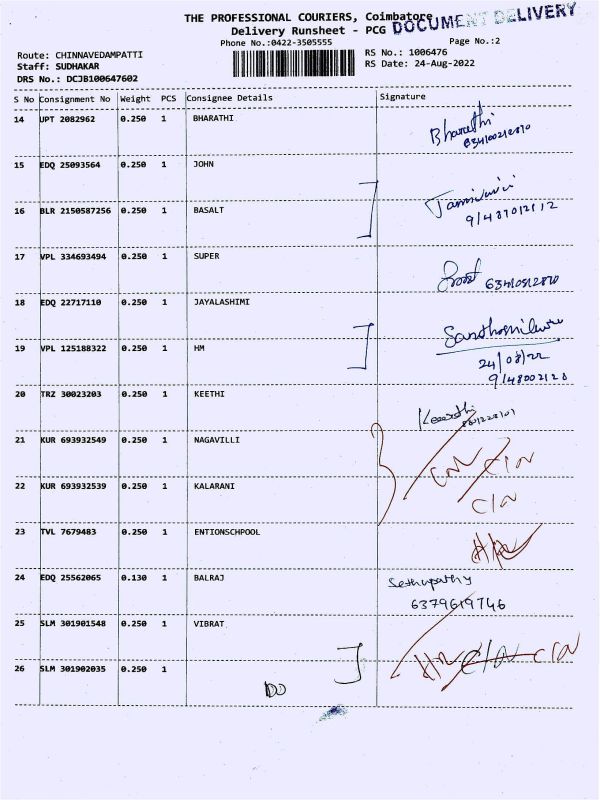 THE PROFESSIONAL COURIERS, Coimbatore
DOCUMENT DELIVERY
Delivery Runsheet - PCG
Phone No.:0422-3505555
Page No.:2
Route: CHINNAVEDAMPATTI
RS No.: 1006476
Staff: SUDHAKAR
RS Date: 24-Aug-2022
DRS No.: DCJB100647602
S No Consignment No Weight PCS Consignee Details Signature
14 UPT 2082962 0.250 1 BHARATHI Bharathi
15 EDQ 25093564 0.250 1 JOHN
16 BLR 2150587256 0.250 1 BASALT
17 VPL 334693494 0.250 1 SUPER
18 EDQ 22717110 0.250 1 JAYALASHIMI
19 VPL 125188322 0.250 1 HM
24/08/22
20 TRZ 30023203 0.250 1 KEETHI
21 KUR 693932549 0.250 1 NAGAVILLI
22 KUR 693932539 0.250 1 KALARANI
23 TVL 7679483 0.250 1 ENTIONSCHPOOL
24 EDQ 25562065 0.130 1 BALRAJ Sethupathy
6379619746
25 SLM 301901548 0.250 1 VIBRAT
26 SLM 301902035 0.250 1
DO